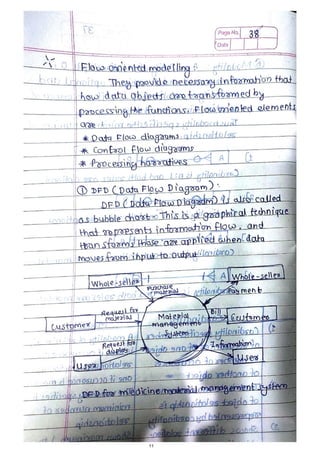 Page No. 38
Date
Flow oriented modelling :
They provide necessary information that
how data objects are transformed by
processing the functions. Flow oriented elements
are :
* Data Flow diagrams
* Control Flow diagrams
* Processing narratives
① DFD (Data Flow Diagram) :
DFD (Data Flow Diagram) is also called
as bubble chart. This is a graphical technique
that represents information flow, and
transforms those are applied when data
moves from input to output
Whole-seller
Whole-seller
Purchase material
Payment
Customer
Request for material
Material management system
Bill
Customer
Request for display
Information
User
User
DFD for medicine material management system